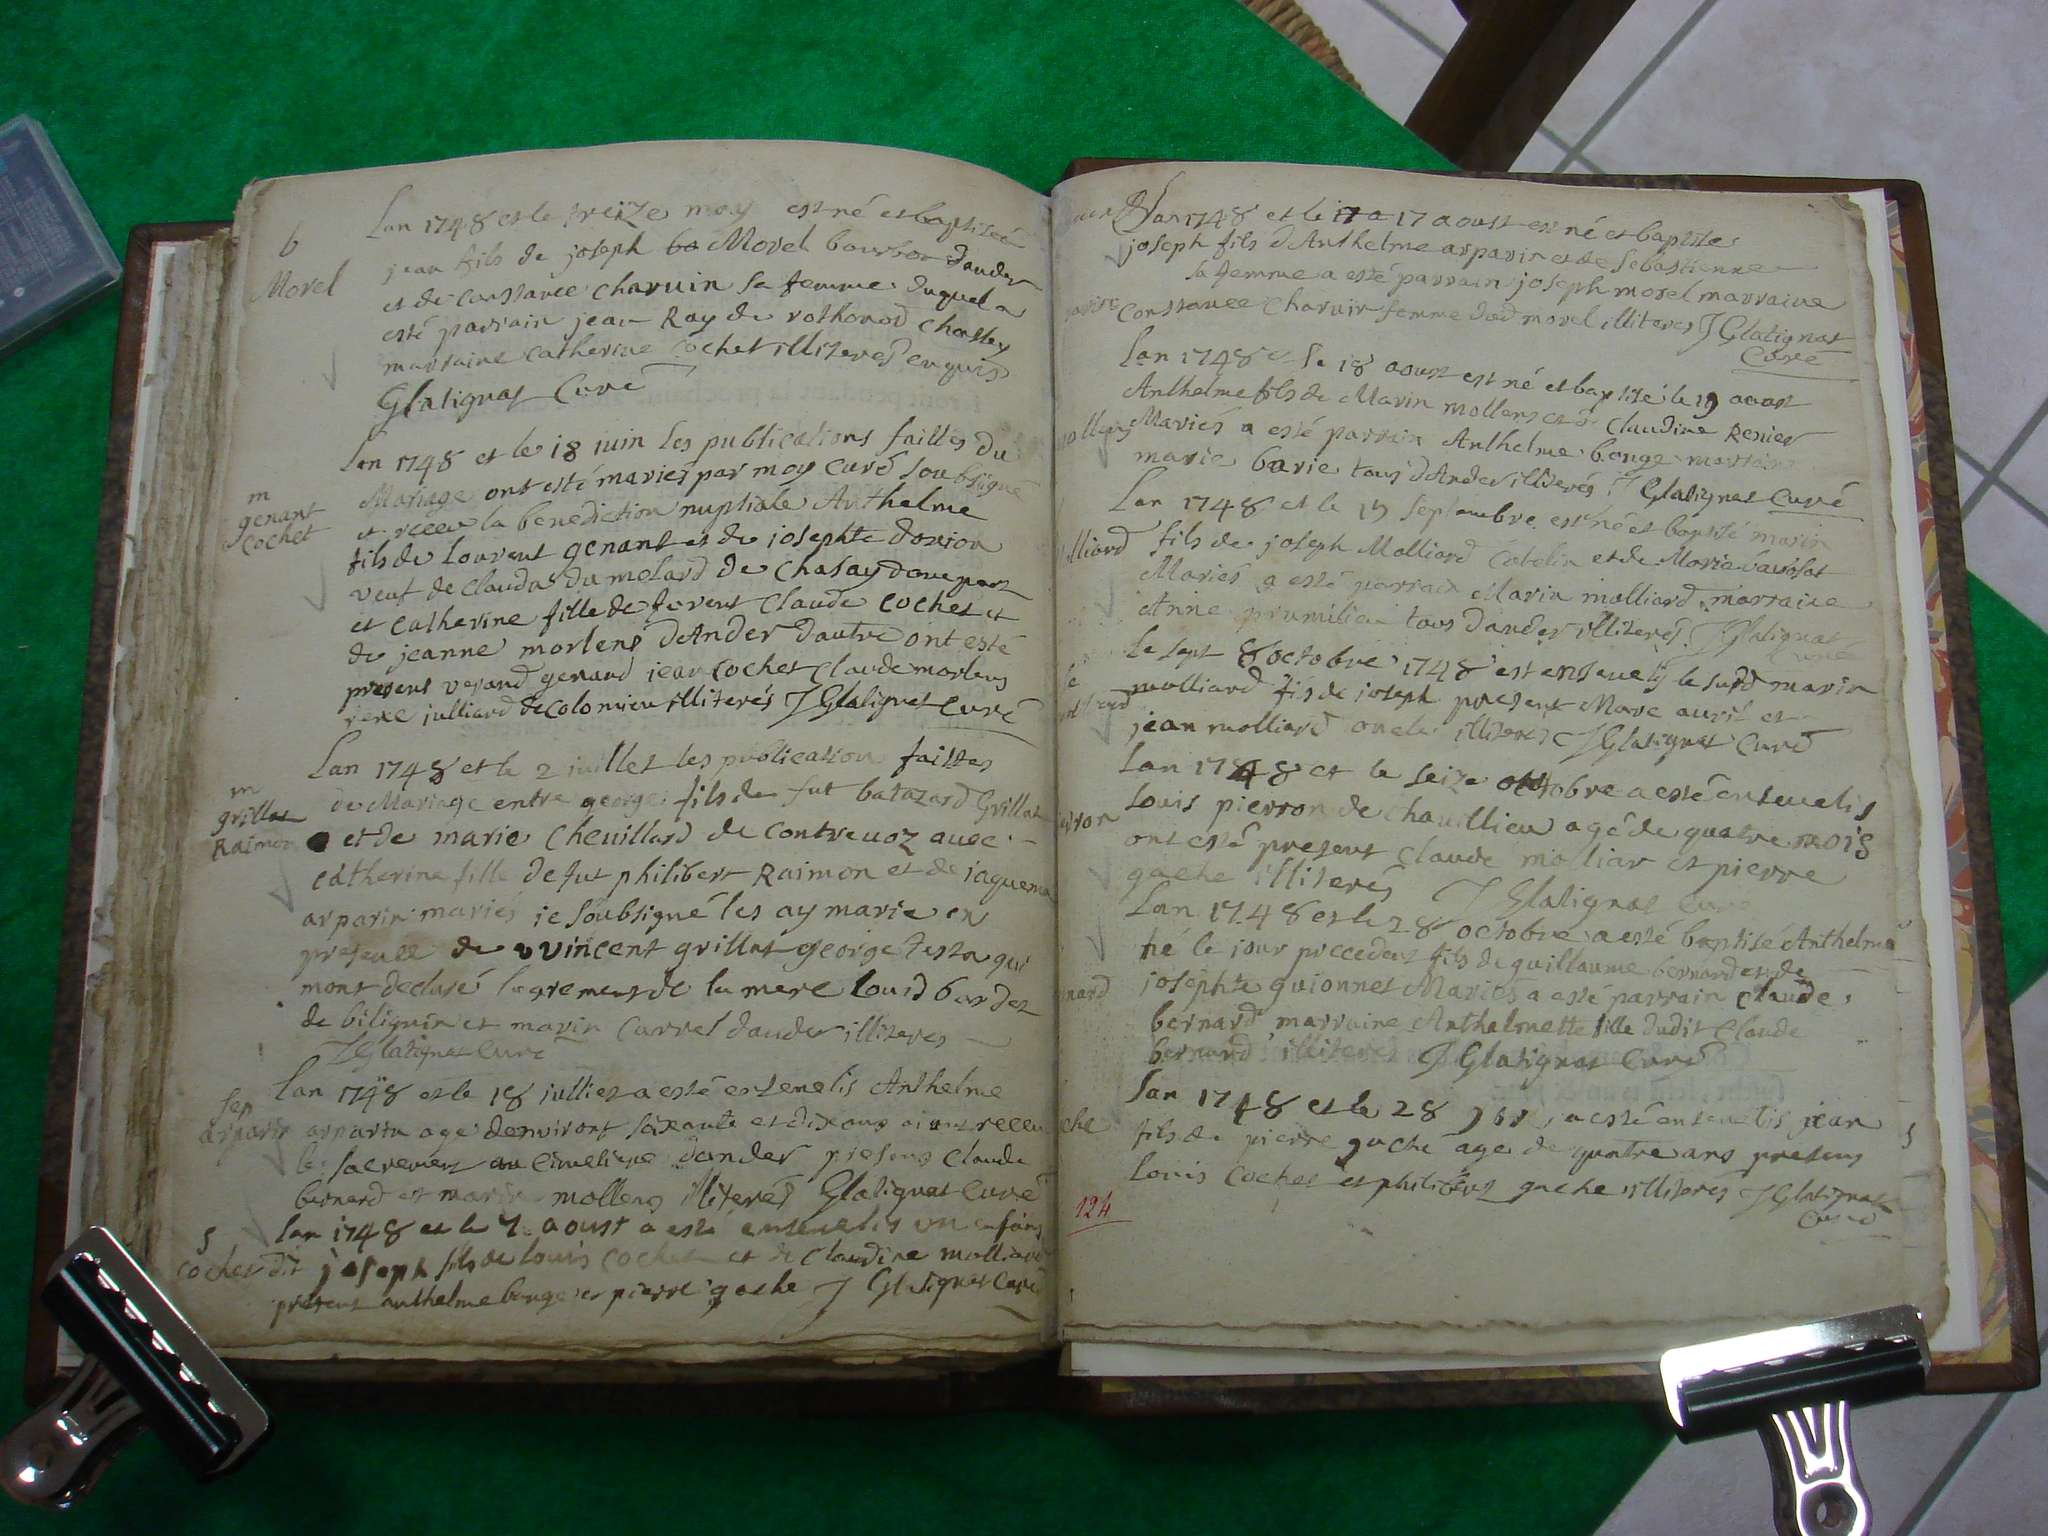 b
Morel
Lan 1748 et le treize may est né et baptisé
jean fils de joseph ba Morel bourbon dander
et de constance charuin sa femme duquel a
esté parrain jean Ray de rothonod
marraine catherine cochet illiteres enquis
Glatignat Curé
m
genant
cochet
Lan 1748 et le 18 juin les publications faittes du
Mariage ont esté mariés par moy curé soubsigné
et receu la benediction nuptiale Anthelme
fils de lourent genant et de josephte
veuf de clauda du molard de Chasay dune part
et catherine fille de Claude cochet et
de jeanne morlens dAnder dautre ont esté
présent genand jean cochet Claude morlens
rene julliard de colomieu illiterés J Glatignat Curé
m
grillat
Raimon
Lan 1748 et le 2 juillet les publications faittes
de Mariage entre george fils de fut batazard Grillat
et de marie Chevillard de Contrevoz avec
catherine fille de fut philibert Raimon et de jaquema
arparin mariés je soubsigné les ay marié en
présence de vincent grillat george testa qui
mont déclaré lagrement de la mere Louis bardet
de bilignin et marin Carrel dander illiteres
J Glatignat Curé
sep
arparin
Lan 1748 et le 18 julliet a esté ensevelis Anthelme
arparin agé denviront soixante et dix ans aiant receu
le sacrement au cimetiere dander présens Claude
bernard et marin mollens illiterés Glatignat Curé
s
cochet
Lan 1748 et le 7 aoust a esté ensevelis un enfans
dit joseph fils de louis cochet et de Claudine molliard
présent anthelme bouge et pierre gache J Glatignat Curé
Lan 1748 et le 17 a 17 aoust est né et baptisé
joseph fils dAnthelme arparin et de sebastienne
sa femme a esté parrain joseph morel marraine
Constance Charuin femme dud morel illiteres J Glatignat
Curé
Lan 1748 et le 18 aoust est né et baptisé le 19 aoust
Anthelme fils de Marin mollens et de Claudine Renier
Mariés a esté parrain Anthelme bouge marraine
marie barie tous dAnder illiterés J Glatignat Curé
lliard
Lan 1748 et le 19 septembre est né et baptisé marin
fils de joseph Molliard Catelin et de Maria
Mariés a esté parrain Marin molliard marraine
Anne prumilieu tous dander illiterés J Glatignat
Curé
Le sept 8 octobre 1748 est ensevely le susd marin
molliard fils de joseph présent Marc auril et
jean molliard oncle illiteres J Glatignat Curé
rron
Lan 1748 et le seize octobre a esté ensevelis
Louis pierron de chavillieu agé de quatre mois
ont esté present claude molliar et pierre
gache illiterés J Glatignat Curé
nard
Lan 1748 et le 28 octobre a esté baptisé Anthelme
né le jour precedent fils de guillaume bernard et de
josephte guionnet Mariés a esté parrain claude
bernard marraine Anthelmette fille dudit Claude
bernard illiteres J Glatignat Curé
che
Lan 1748 et le 28 9bre a esté ensevelis jean
fils de pierre gache age de quatre ans presens
Louis cochet et philibert gache illiterés J Glatignat
Curé
s
124